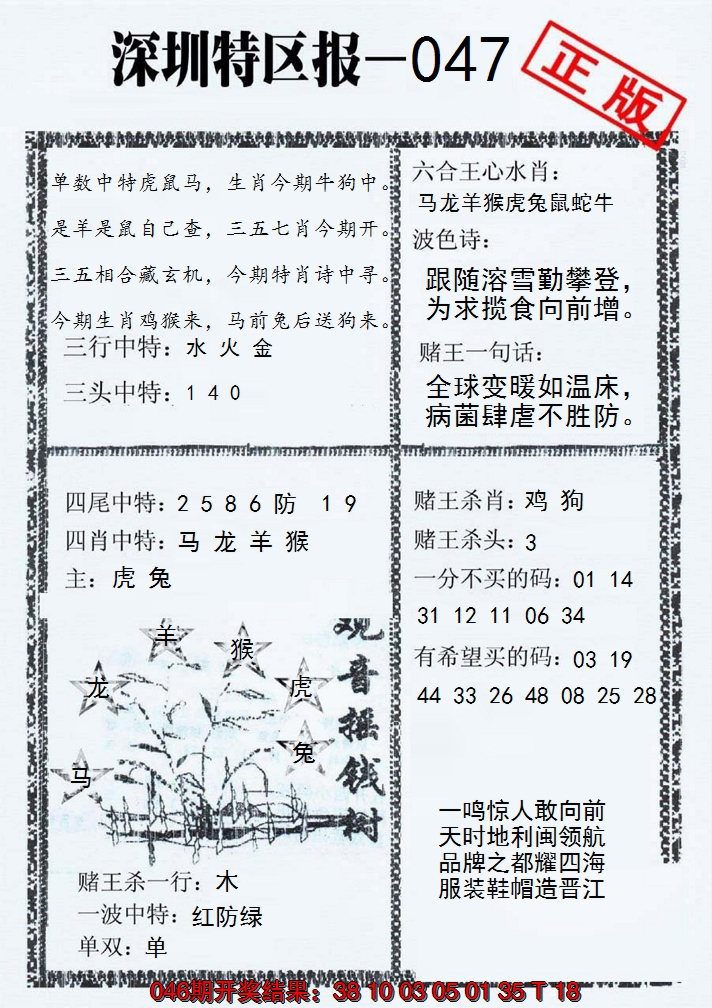 深圳特区报—047
正版
单数中特虎鼠马，生肖今期牛狗中。
是羊是鼠自己查，三五七肖今期开。
三五相合藏玄机，今期特肖诗中寻。
今期生肖鸡猴来，马前兔后送狗来。
三行中特：水 火 金
三头中特：1 4 0
六合王心水肖：
马龙羊猴虎兔鼠蛇牛
波色诗：
跟随溶雪勤攀登，
为求揽食向前增。
赌王一句话：
全球变暖如温床，
病菌肆虐不胜防。
四尾中特：2 5 8 6 防 1 9
四肖中特：马 龙 羊 猴
主：虎 兔
羊
猴
龙
虎
兔
马
观音摇钱树
赌王杀一行：木
一波中特：红防绿
单双：单
赌王杀肖：鸡 狗
赌王杀头：3
一分不买的码：01 14
31 12 11 06 34
有希望买的码：03 19
44 33 26 48 08 25 28
一鸣惊人敢向前
天时地利闽领航
品牌之都耀四海
服装鞋帽造晋江
046期开奖结果：38 10 03 05 01 35 T 18